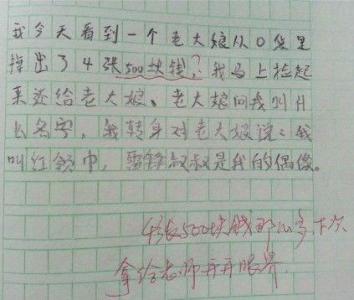 我今天看到一个老大娘从0袋里
掉出了4张500块钱?我马上捡起
来还给老大娘、老大娘问我叫什
么名字,我转身对老大娘说:我
叫红领巾,雷锋叔叔是我的偶像。
4张500块钱 下次
拿给老师开开眼界